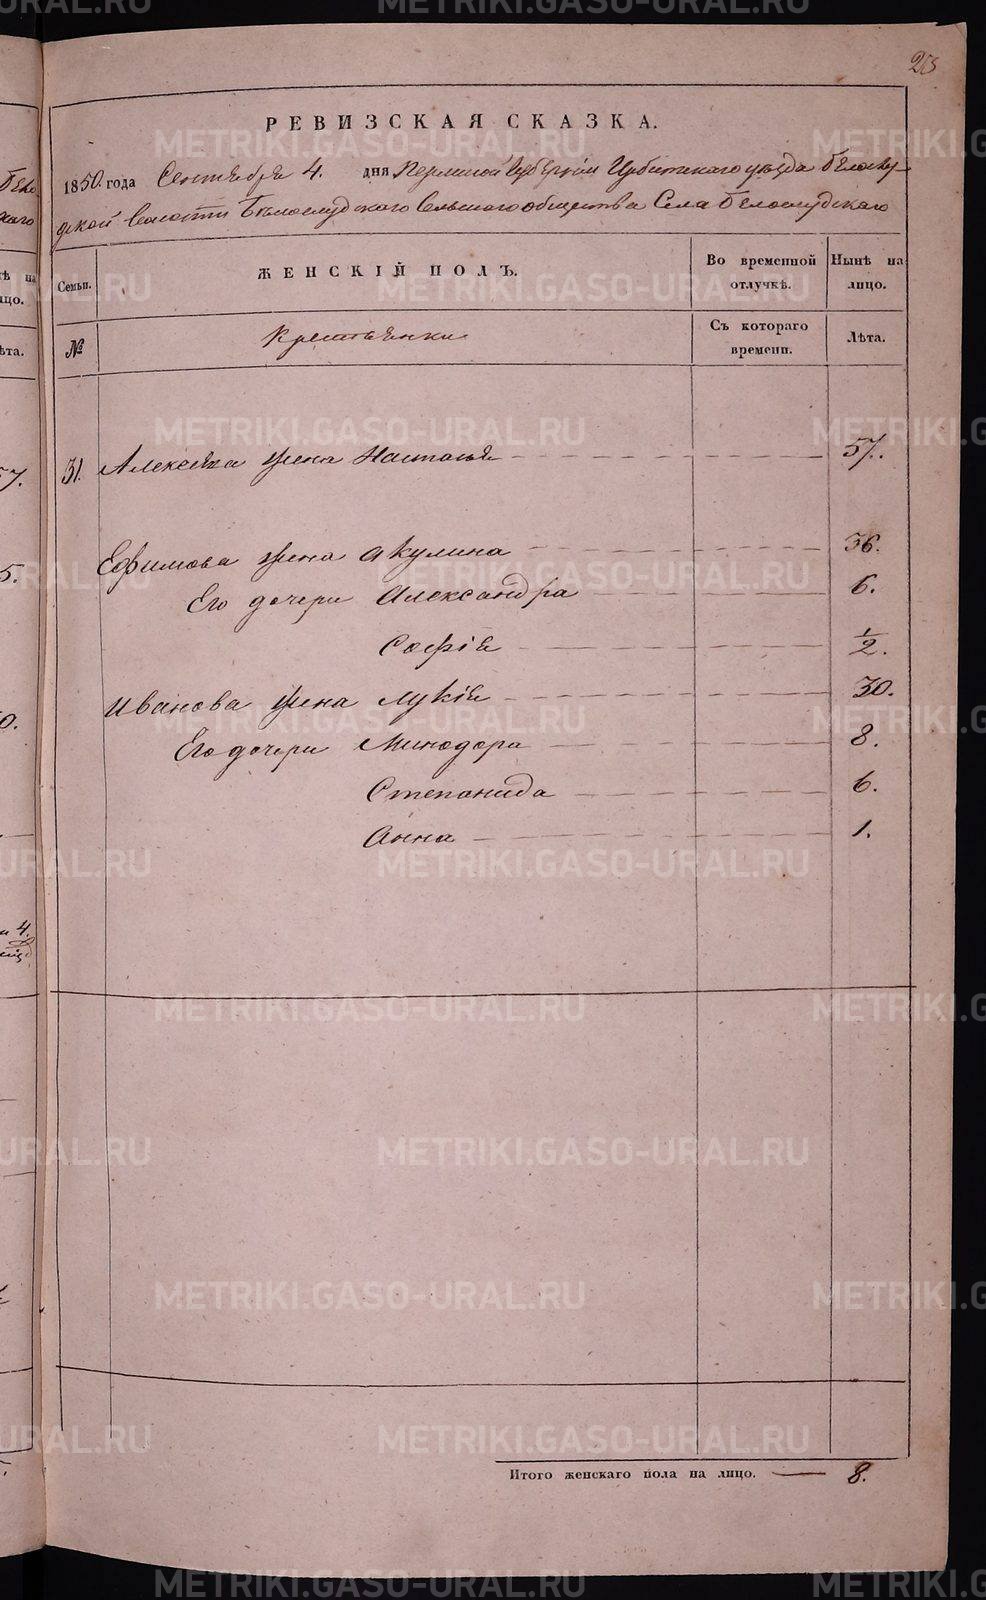 РЕВИЗСКАЯ СКАЗКА.
1850. года Сентября 4. дня Пермской Губернiи Ирбитскаго уѣзда Бѣлослу-
дской волости Бѣлослудскаго сельскаго общества Села Бѣлослудскаго
Семьи. ЖЕНСКІЙ ПОЛЪ. Во временной отлучкѣ. Нынѣ на лицо.
№ Крестьянки Съ котораго времени. Лѣта.
31. Алексѣя жена Настасья 57.
Ефимова жена Акулина 36.
Его дочери Александра 6.
Софія 1/2.
Иванова жена Лукія 30.
Его дочери Минодора 8.
Степанида 6.
Анна 1.
Итого женскаго пола на лицо. 8.
METRIKI.GASO-URAL.RU